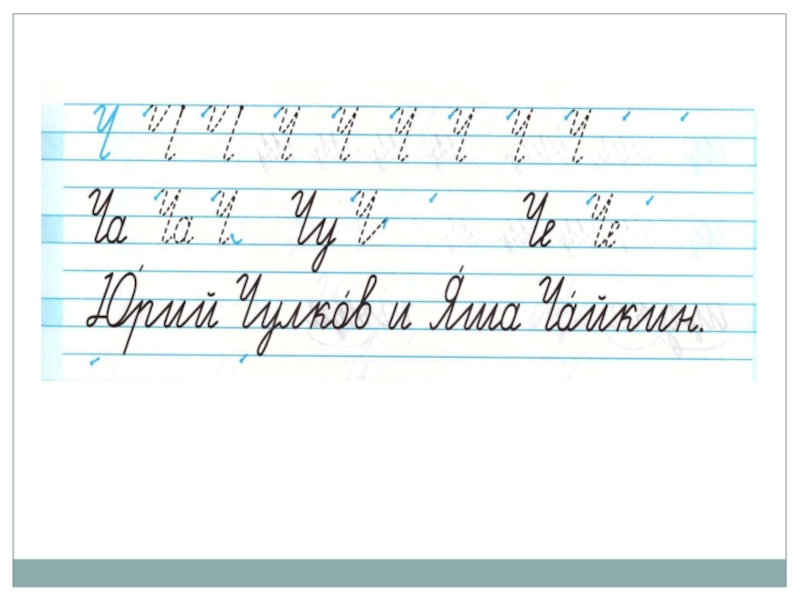 Ч Ч Ч Ч Ч Ч Ч Ч Ч
Ча Ча Ч Чу Ч Че Че
Ю́рий Чулко́в и Я́ша Ча́йкин.